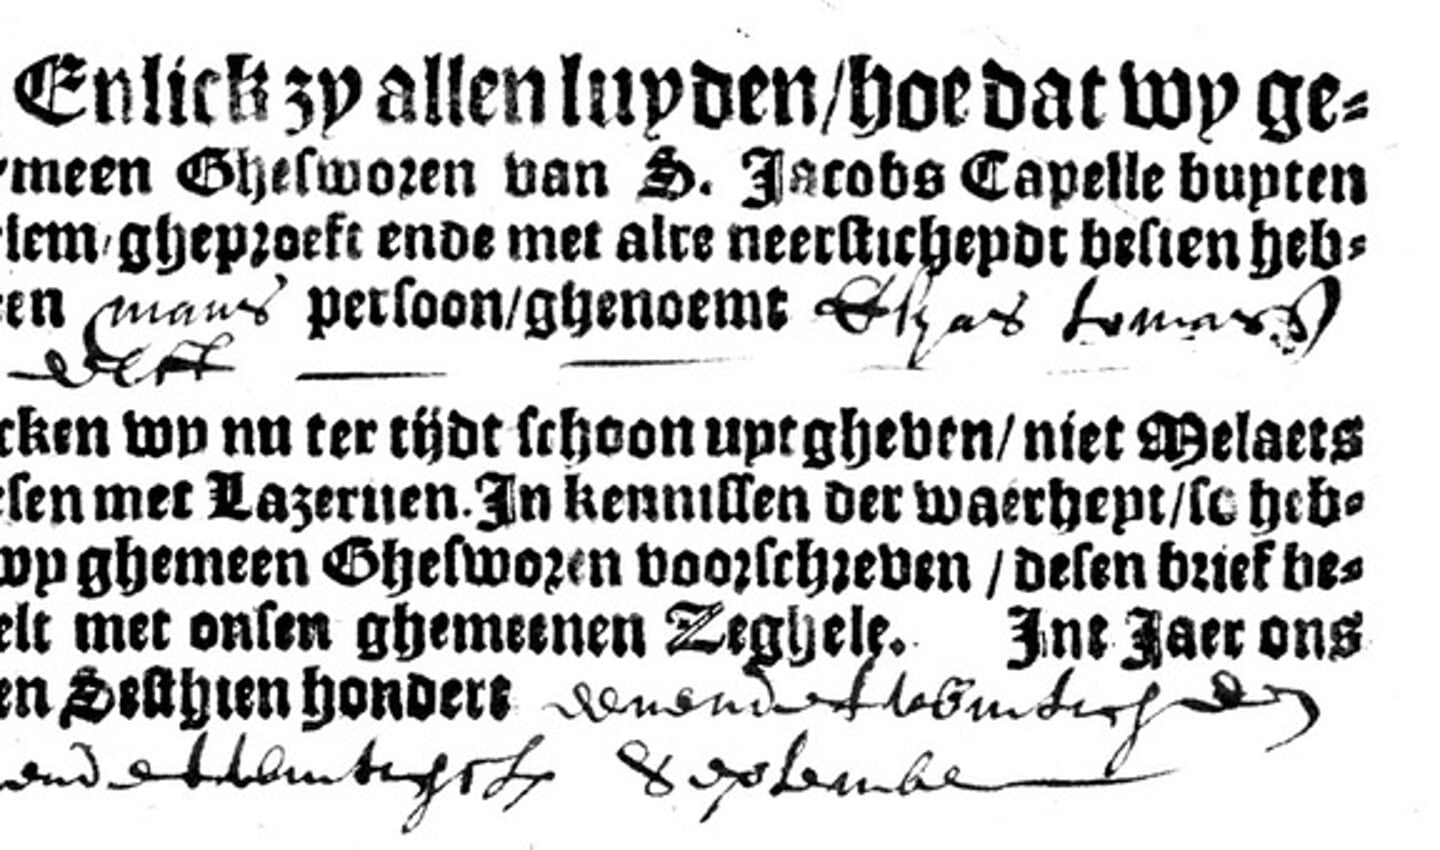 Enlick zy allen luyden/hoe dat wy ge-
meen Ghesworen van S. Jacobs Capelle buyten
lem/gheproeft ende met alre neersticheydt besien heb-
een mans persoon/ghenoemt Elyas
Delft
cken wy nu ter tijdt schoon uytgheven/niet Melaets
sen met Lazernen. In kennissen der waerheyt/so heb-
wy ghemeen Ghesworen voorschreven/desen brief be-
elt met onsen ghemeenen Zeghele. Int Jaer ons
en Sesthien hondert eenendetwintich den
endetwintichste September